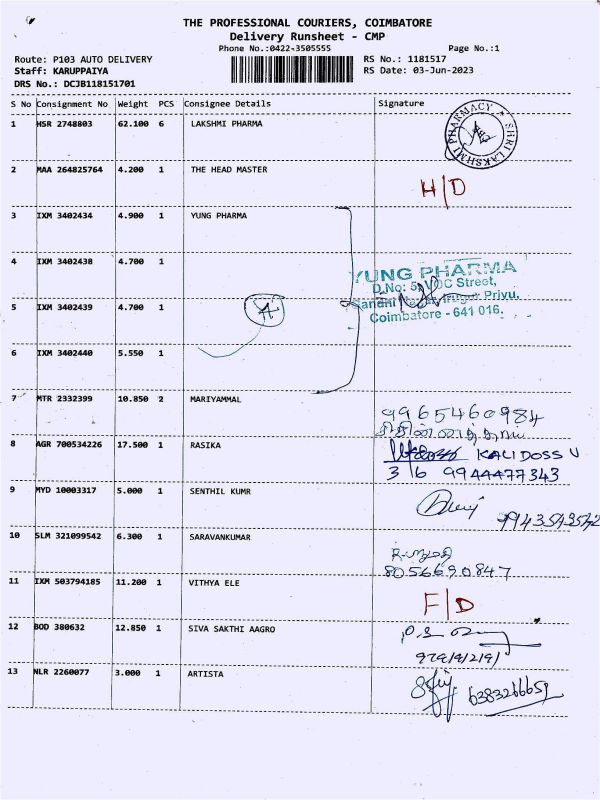 THE PROFESSIONAL COURIERS, COIMBATORE
Delivery Runsheet - CMP
Phone No.:0422-3505555 Page No.:1
Route: P103 AUTO DELIVERY RS No.: 1181517
Staff: KARUPPAIYA RS Date: 03-Jun-2023
DRS No.: DCJB118151701
S No Consignment No Weight PCS Consignee Details Signature
1 HSR 2748803 62.100 6 LAKSHMI PHARMA
SHRI LAKSHMI PHARMACY
2 MAA 264825764 4.200 1 THE HEAD MASTER
H/D
3 IXM 3402434 4.900 1 YUNG PHARMA
4 IXM 3402438 4.700 1
YUNG PHARMA
D.No: 5, VOC Street,
5 IXM 3402439 4.700 1
Coimbatore - 641 016.
6 IXM 3402440 5.550 1
7 MTR 2332399 10.850 2 MARIYAMMAL
9965460984
8 AGR 700534226 17.500 1 RASIKA
KALIDOSS V
3/6 9944477343
9 MYD 10003317 5.000 1 SENTHIL KUMR
10 SLM 321099542 6.300 1 SARAVANKUMAR
8056690847
11 IXM 503794185 11.200 1 VITHYA ELE
F/D
12 BOD 380632 12.850 1 SIVA SAKTHI AAGRO
13 NLR 2260077 3.000 1 ARTISTA
6383266659